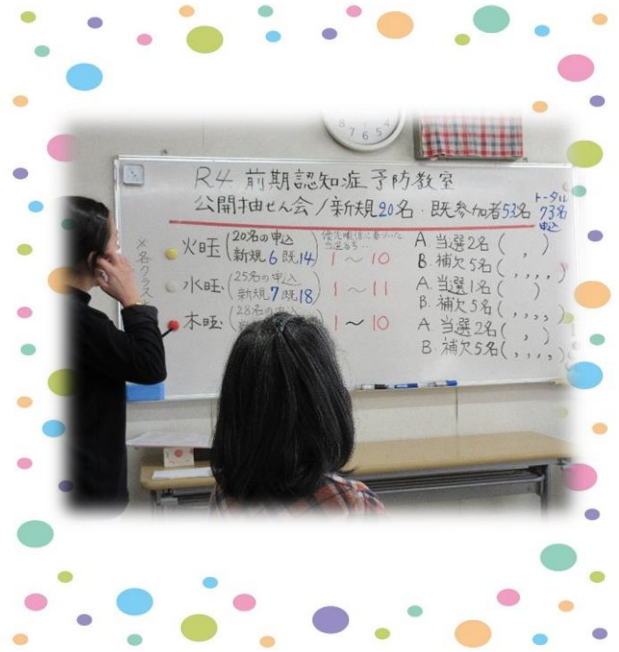 R4 前期認知症予防教室
公開抽せん会/新規20名・既参加者53名 トータル73名申込
火曜 (20名の申込 新規6 既14) 1〜10 A 当選2名( , )
B. 補欠5名( , , , , )
水曜 (25名の申込 新規7 既18) 1〜11 A. 当選1名( )
B. 補欠5名( , , , , )
木曜 (28名の申込 1〜10 A 当選2名( , )
B. 補欠5名( , , , , )